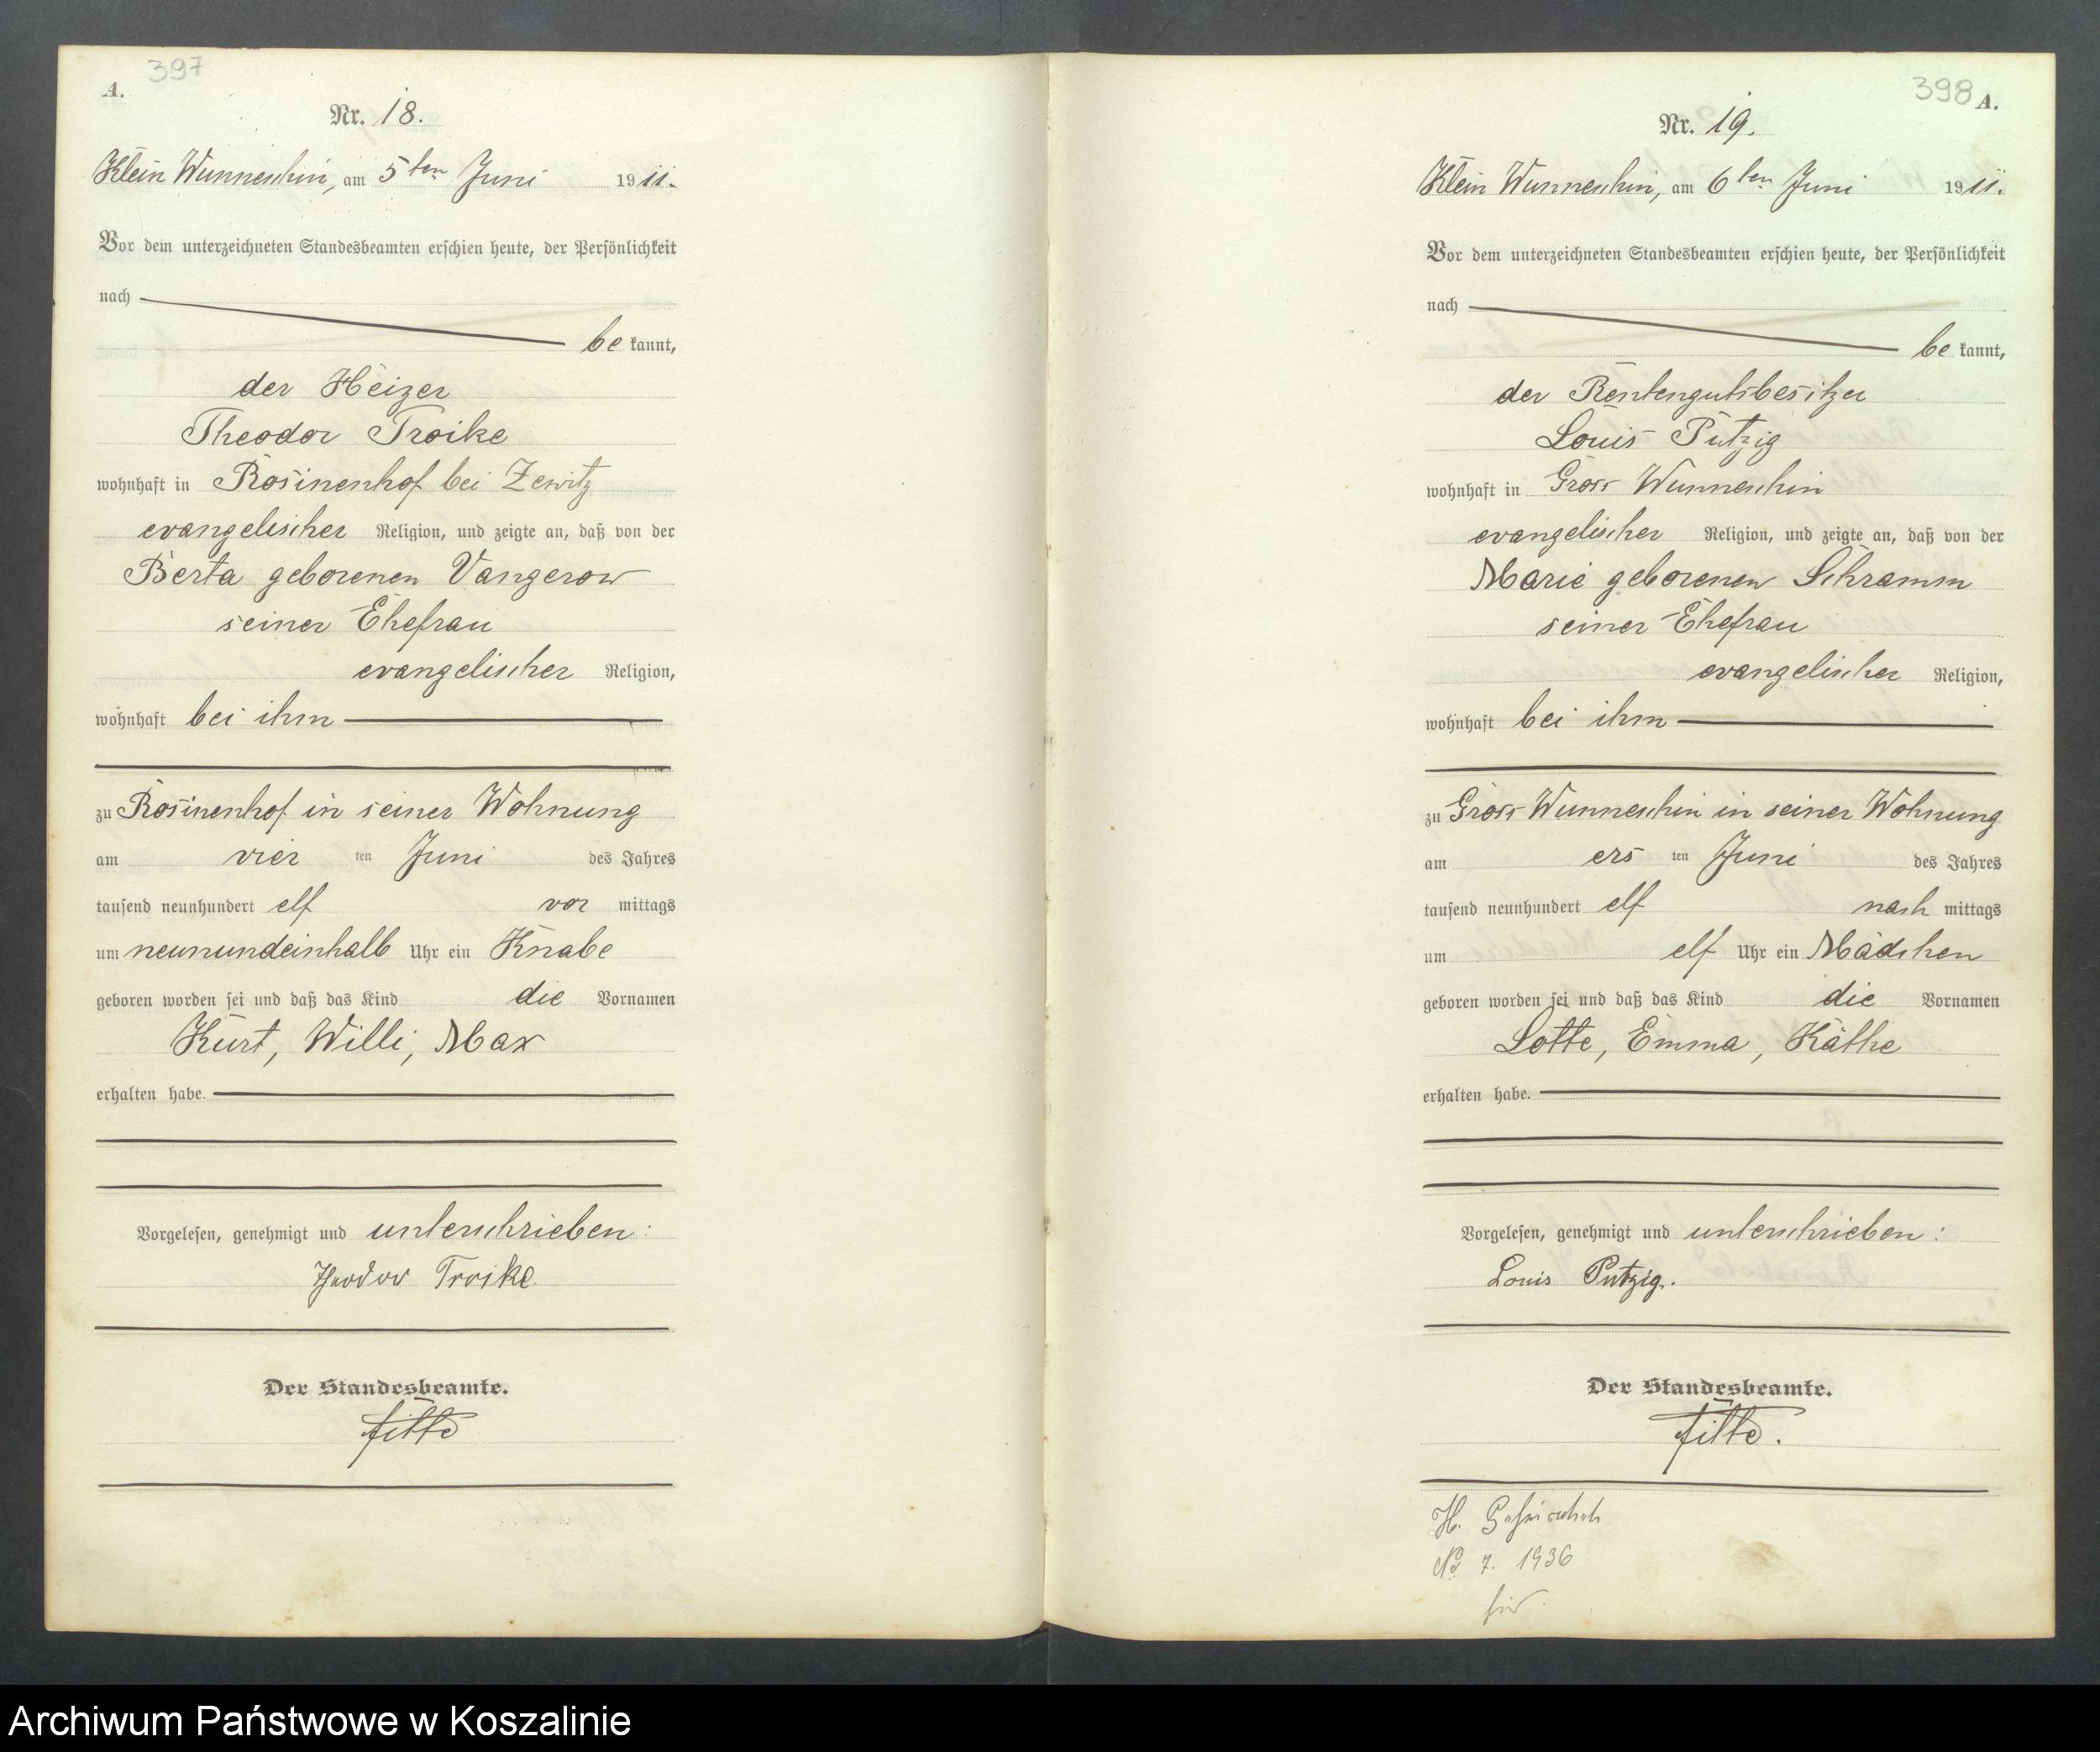 397
A.
Nr. 18.
Klein Wunneschin, am 5ten Juni 1911.
Vor dem unterzeichneten Standesbeamten erschien heute, der Persönlichkeit
nach
be kannt,
der Heizer
Theodor Troike
wohnhaft in Rosinenhof bei Zewitz
evangelischer Religion, und zeigte an, daß von der
Berta geborenen Vangerow
seiner Ehefrau
evangelischer Religion,
wohnhaft bei ihm
zu Rosinenhof in seiner Wohnung
am vier ten Juni des Jahres
tausend neunhundert elf vor mittags
um neunundeinhalb Uhr ein Knabe
geboren worden sei und daß das Kind die Vornamen
Kurt, Willi, Max
erhalten habe.
Vorgelesen, genehmigt und unterschrieben:
Theodor Troike.
Der Standesbeamte.
398
A.
Nr. 19.
Klein Wunneschin, am 6ten Juni 1911.
Vor dem unterzeichneten Standesbeamten erschien heute, der Persönlichkeit
nach
be kannt,
der Rentengutsbesitzer
Louis Putzig
wohnhaft in Gross Wunneschin
evangelischer Religion, und zeigte an, daß von der
Marie geborenen Schramm
seiner Ehefrau
evangelischer Religion,
wohnhaft bei ihm
zu Gross Wunneschin in seiner Wohnung
am ers ten Juni des Jahres
tausend neunhundert elf nach mittags
um elf Uhr ein Mädchen
geboren worden sei und daß das Kind die Vornamen
Lotte, Emma, Käthe
erhalten habe.
Vorgelesen, genehmigt und unterschrieben:
Louis Putzig.
Der Standesbeamte.
H.
No 7. 1936
Archiwum Państwowe w Koszalinie